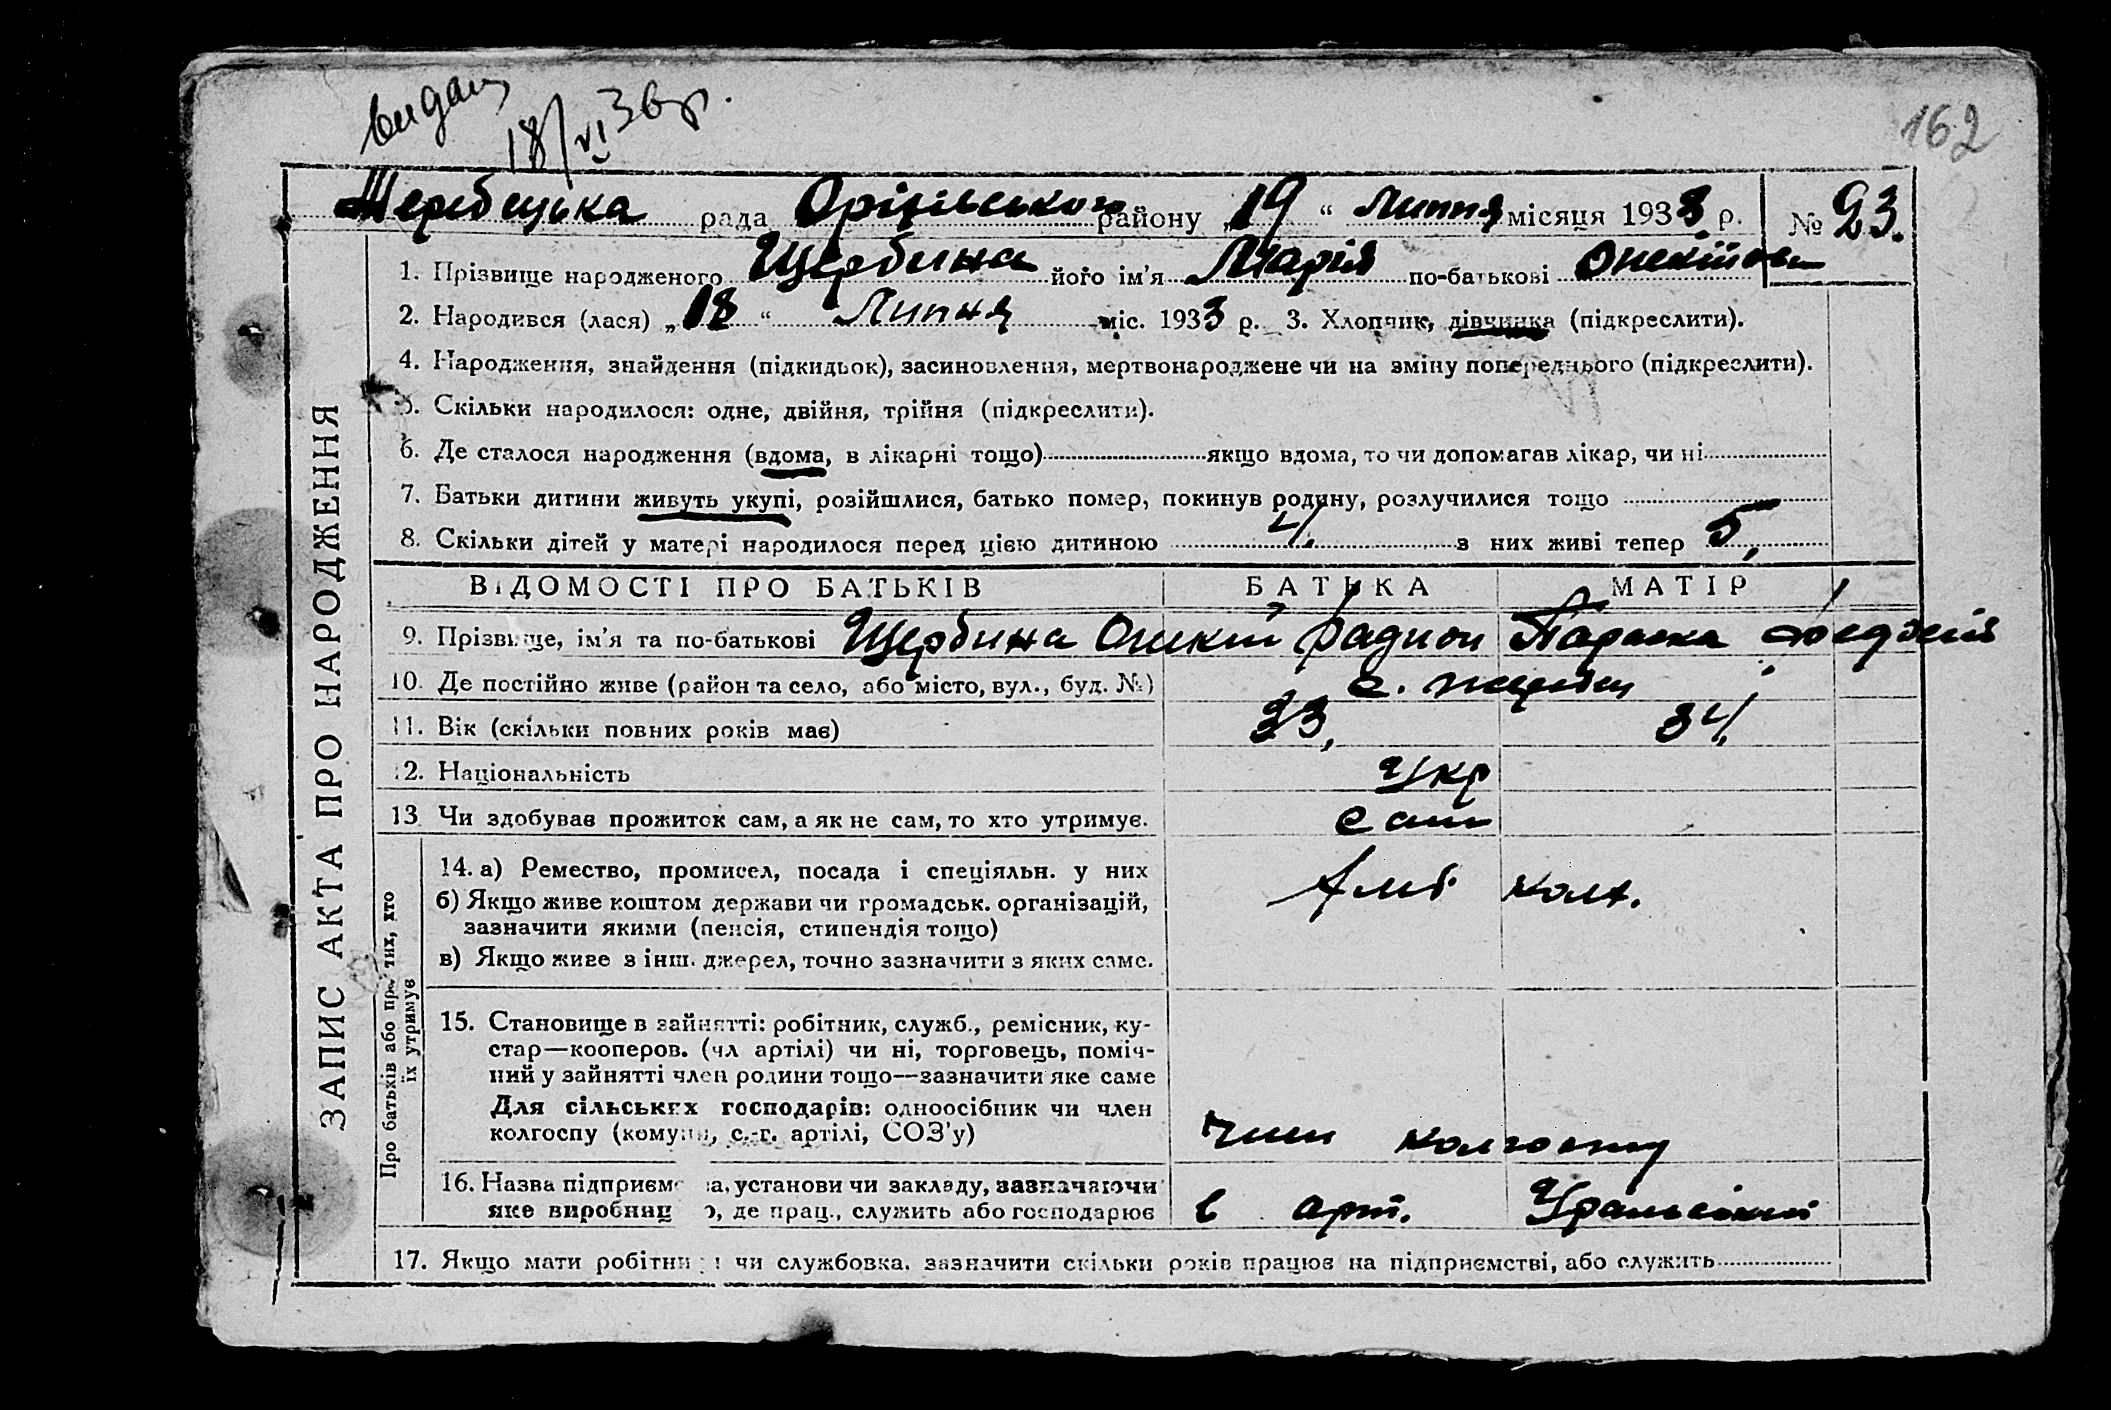 видан
18/VI 36 р.
162
Жеребецька рада Оріхівського району „19“ Липня місяця 1933 р. № 23.
1. Прізвище народженого Щербина його ім’я Марія по-батькові Оникіївн
2. Народився (лася) „18“ Липня міс. 1933 р. 3. Хлопчик, дівчинка (підкреслити).
4. Народження, знайдення (підкидьок), засиновлення, мертвонароджене чи на зміну попереднього (підкреслити).
5. Скільки народилося: одне, двійня, трійня (підкреслити).
6. Де сталося народження (вдома, в лікарні тощо) якщо вдома, то чи допомагав лікар, чи ні
7. Батьки дитини живуть укупі, розійшлися, батько помер, покинув родину, розлучилися тощо
8. Скільки дітей у матері народилося перед цією дитиною 4. з них живі тепер 5,
ВІДОМОСТІ ПРО БАТЬКІВ БАТЬКА МАТІР
9. Прізвище, ім’я та по-батькові Щербина Оникій Радион Параска
10. Де постійно живе (район та село, або місто, вул., буд. №) с. Жеребец
11. Вік (скільки повних років має) 33, 34
12. Національність Укр
13. Чи здобуває прожиток сам, а як не сам, то хто утримує. сам
14. а) Ремество, промисел, посада і спеціяльн. у них колг.
б) Якщо живе коштом держави чи громадськ. організацій,
зазначити якими (пенсія, стипендія тощо)
в) Якщо живе з інш. джерел, точно зазначити з яких саме.
15. Становище в зайнятті: робітник, служб., ремісник, ку-
стар—кооперов. (чл артілі) чи ні, торговець, поміч-
ний у зайнятті член родини тощо—зазначити яке саме
Для сільських господарів: одноосібник чи член
колгоспу (комуни, с.-г. артілі, СОЗ’у) член колгоспу
16. Назва підприємства, установи чи закладу, зазначаючи
яке виробниц о, де прац., служить або господарює в арт. Уральський
17. Якщо мати робітниця чи службовка, зазначити скільки років працює на підприємстві, або служить
ЗАПИС АКТА ПРО НАРОДЖЕННЯ
Про батьків або про тих, хто
їх утримує